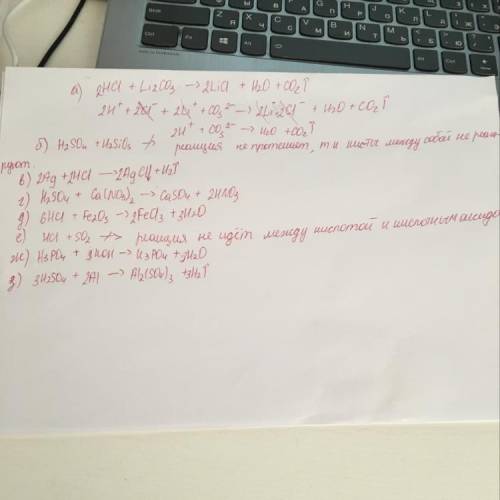 а) 2HCl + Li2CO3 → 2LiCl + H2O + CO2↑
2H⁺ + 2Cl⁻ + 2Li⁺ + CO3²⁻ → 2Li⁺ 2Cl⁻ + H2O + CO2↑
2H⁺ + CO3²⁻ → H2O + CO2↑
б) H2SO4 + H2SiO3 ↛ реакция не протекает, т к кислоты между собой не реаги
руют.
в) 2Ag + 2HCl → 2AgCl + H2↑
г) H2SO4 + Ca(NO3)2 → CaSO4 + 2HNO3
д) 6HCl + Fe2O3 → 2FeCl3 + 3H2O
е) HCl + SO2 ↛ реакция не идёт между кислотой и кислотным оксидом
ж) H3PO4 + 3KOH → K3PO4 + 3H2O
з) 3H2SO4 + 2Al → Al2(SO4)3 + 3H2↑